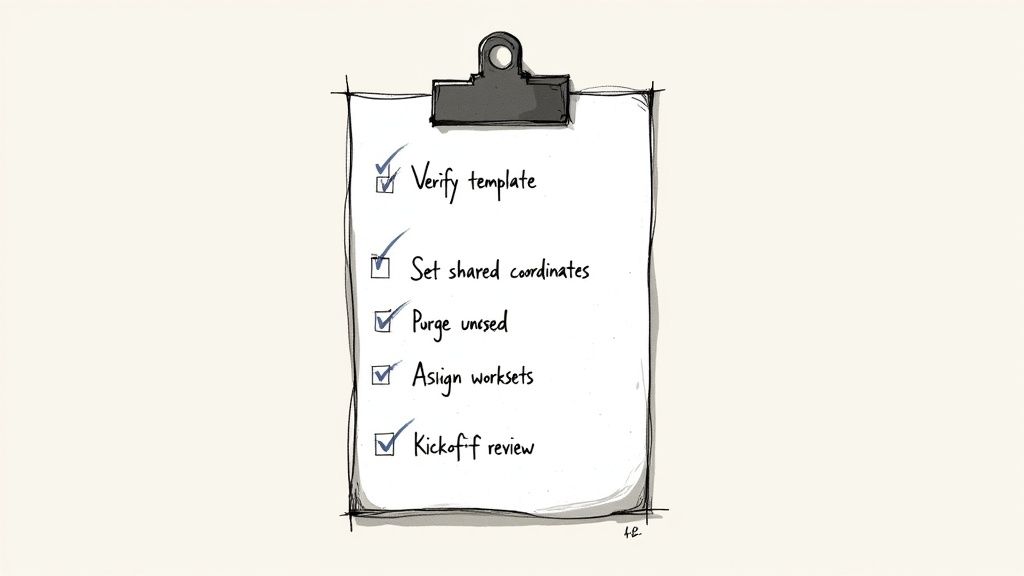 Verify template
Set shared coordinates
Purge unused
Assign worksets
Kickoff review